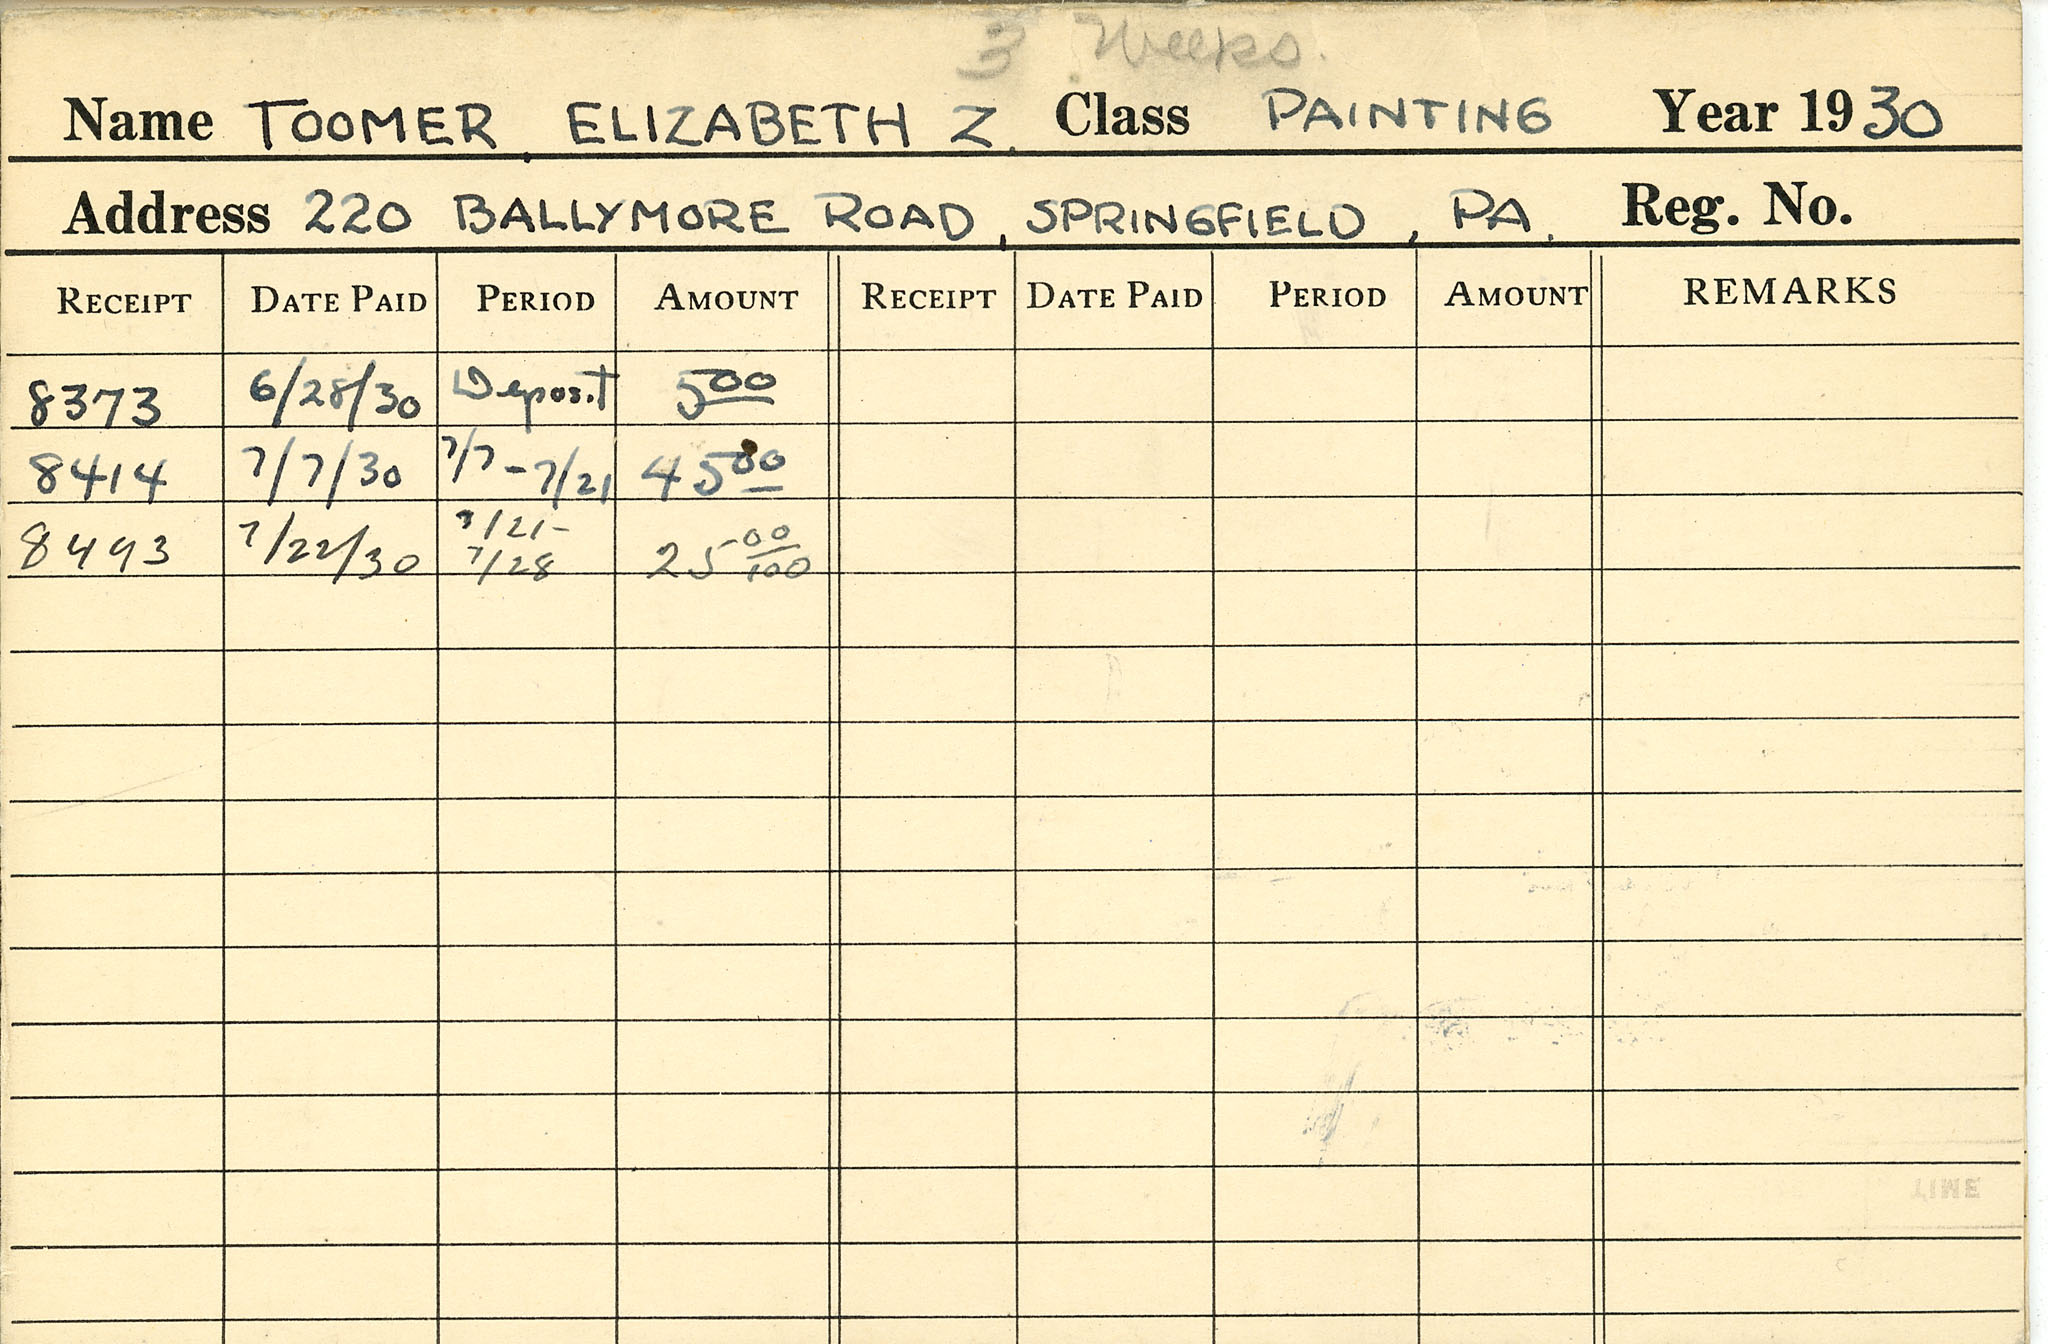 3 Weeks.
Name TOOMER, ELIZABETH Z. Class PAINTING Year 1930
Address 220 BALLYMORE ROAD, SPRINGFIELD, PA. Reg. No.
RECEIPT DATE PAID PERIOD AMOUNT RECEIPT DATE PAID PERIOD AMOUNT REMARKS
8373 6/28/30 Deposit 5 00
8414 7/7/30 7/7 - 7/21 45 00
8493 7/22/30 7/21- 7/28 25 00/100